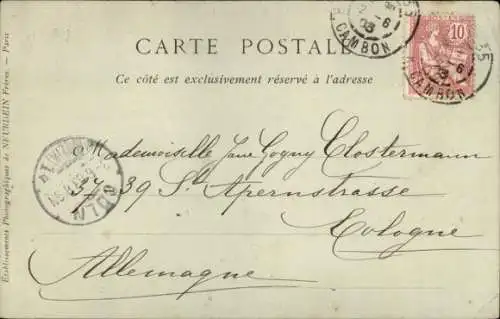 CARTE POSTALE
Ce côté est exclusivement réservé à l'adresse
10
CAMBON
CAMBON
Mademoiselle Jane Gogny Clostermann
37-39 St Apernstrasse
Cologne
Allemagne
CÖLN
Etablissements Photographiques de NEURDEIN Frères. — Paris